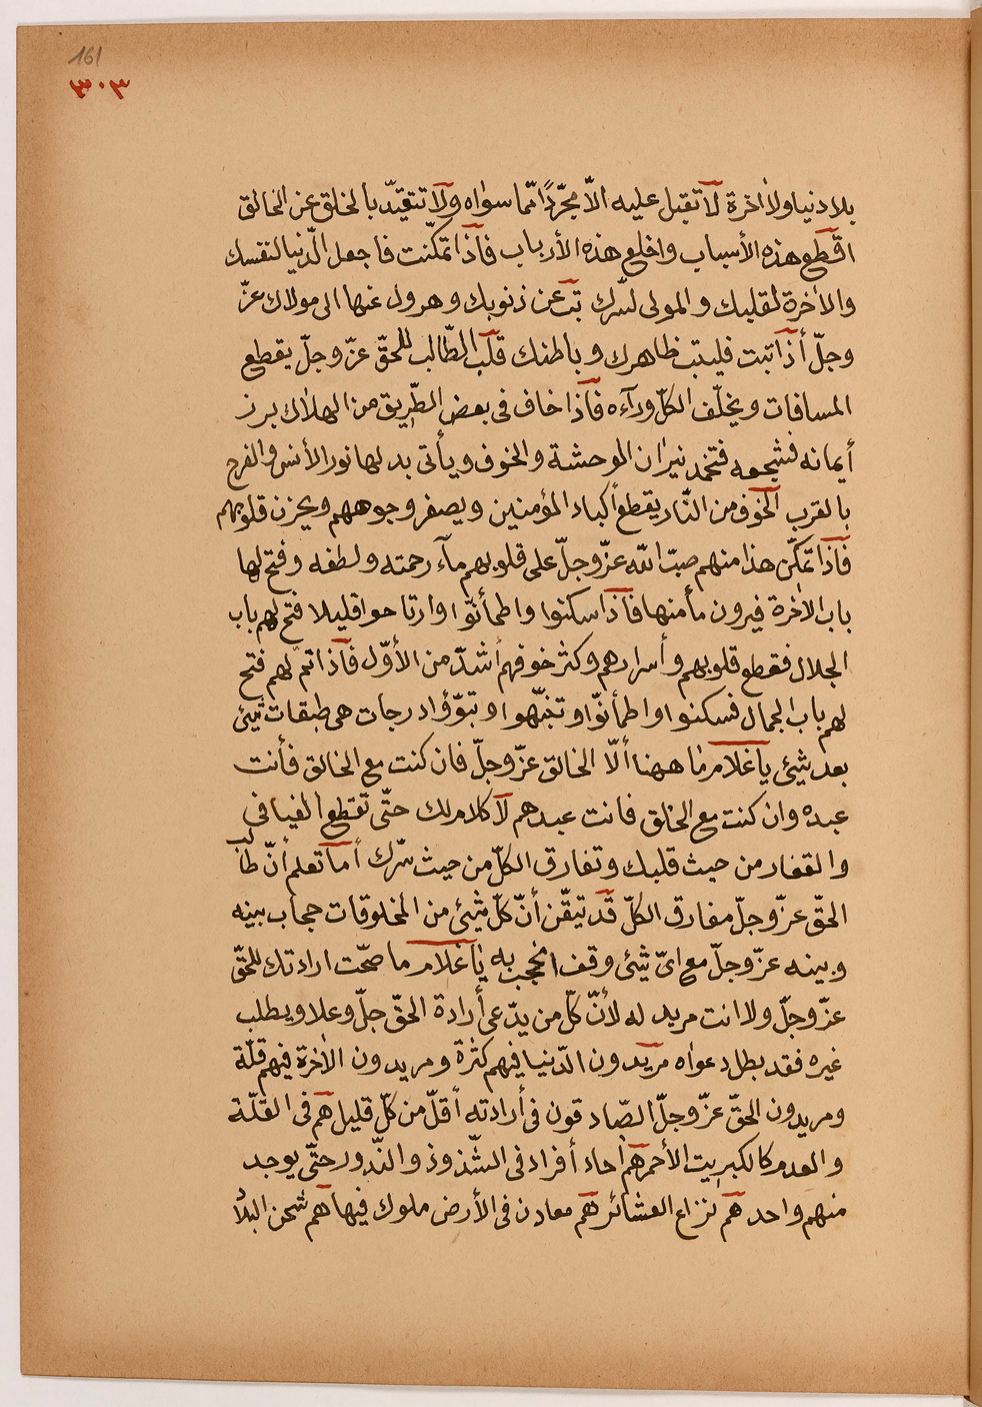 161
٣٠٣
بلا دنيا ولا اٰخرة لا تقبل عليه الاّ مجرّدًا ممّا سواه ولا تتقيّد بالخلق عن الخالق
اقطع هذه الأسباب واخلع هذه الأرباب فأذا تمكّنت فاجعل الدّنيا لنفسك
والاٰخرة لقلبك والمولى لسّرك تب عن ذنوبك وهرول عنها الى مولاك عزّ
وجلّ أذا تبت فليتب ظاهرك وباطنك قلب الطّالب للحقّ عزّ وجلّ يقطع
المسافات ويخلّف الكلّ ورآءه فأذا خاف فى بعض الطّريق من الهلاك برز
أيمانه فشجعه فتخمد نيران الوحشة والخوف ويأتى بدلها نور الأنس والفرح
بالقرب الخوف من النّار يقطع أكباد المؤمنين ويصفر وجوههم ويحزن قلوبهم
فأذا تمكّن هذا منهم صبّ الله عزّ وجلّ على قلوبهم مآء رحمته ولطفه وفتح لها
باب الاٰخرة فيرون مأمنها فأذا سكنوا واطمأنّوا وارتاحوا قليلا فتح لهم باب
الجلال فقطع قلوبهم وأسرارهم وكثر خوفهم أشدّ من الأوّل فأذا تمّ لهم فتح
لهم باب الجمال فسكنوا واطمأنّوا وتنبّهوا وتبوّؤا درجات هى طبقات شيئ
بعد شيئ يا غلام ما ههنا ألاّ الخالق عزّ وجلّ فان كنت مع الخالق فأنت
عبده وان كنت مع الخلق فانت عبدهم لا كلام لك حتّى تقطع الفيافى
والقفار من حيث قلبك وتفارق الكلّ من حيث سّرك أما تعلم أنّ طالب
الحقّ عزّ وجلّ مفارق الكلّ قد تيقّن أنّ كلّ شيئ من المخلوقات حجاب بينه
وبينه عزّ وجلّ مع اىّ شيئ وقف انحجب به يا غلام ما صحّت ارادتك للحقّ
عزّ وجلّ ولا انت مريد له لأنّ كلّ من يدّعى أرادة الحقّ جلّ وعلا ويطلب
غيره فقد بطل دعواه مريدون الدّنيا فيهم كثرة ومريدون الاٰخرة فيهم قلّة
ومريدون الحقّ عزّ وجلّ الصّادقون فى أرادته أقلّ من كلّ قليل هم فى القلّة
والعدم كالكبريت الأحمر هم اٰحاد أفراد فى الشّذوذ والنّدور حتّى يوجد
منهم واحد هم نزاع العشائر هم معادن فى الأرض ملوك فيها هم شحن البلاد